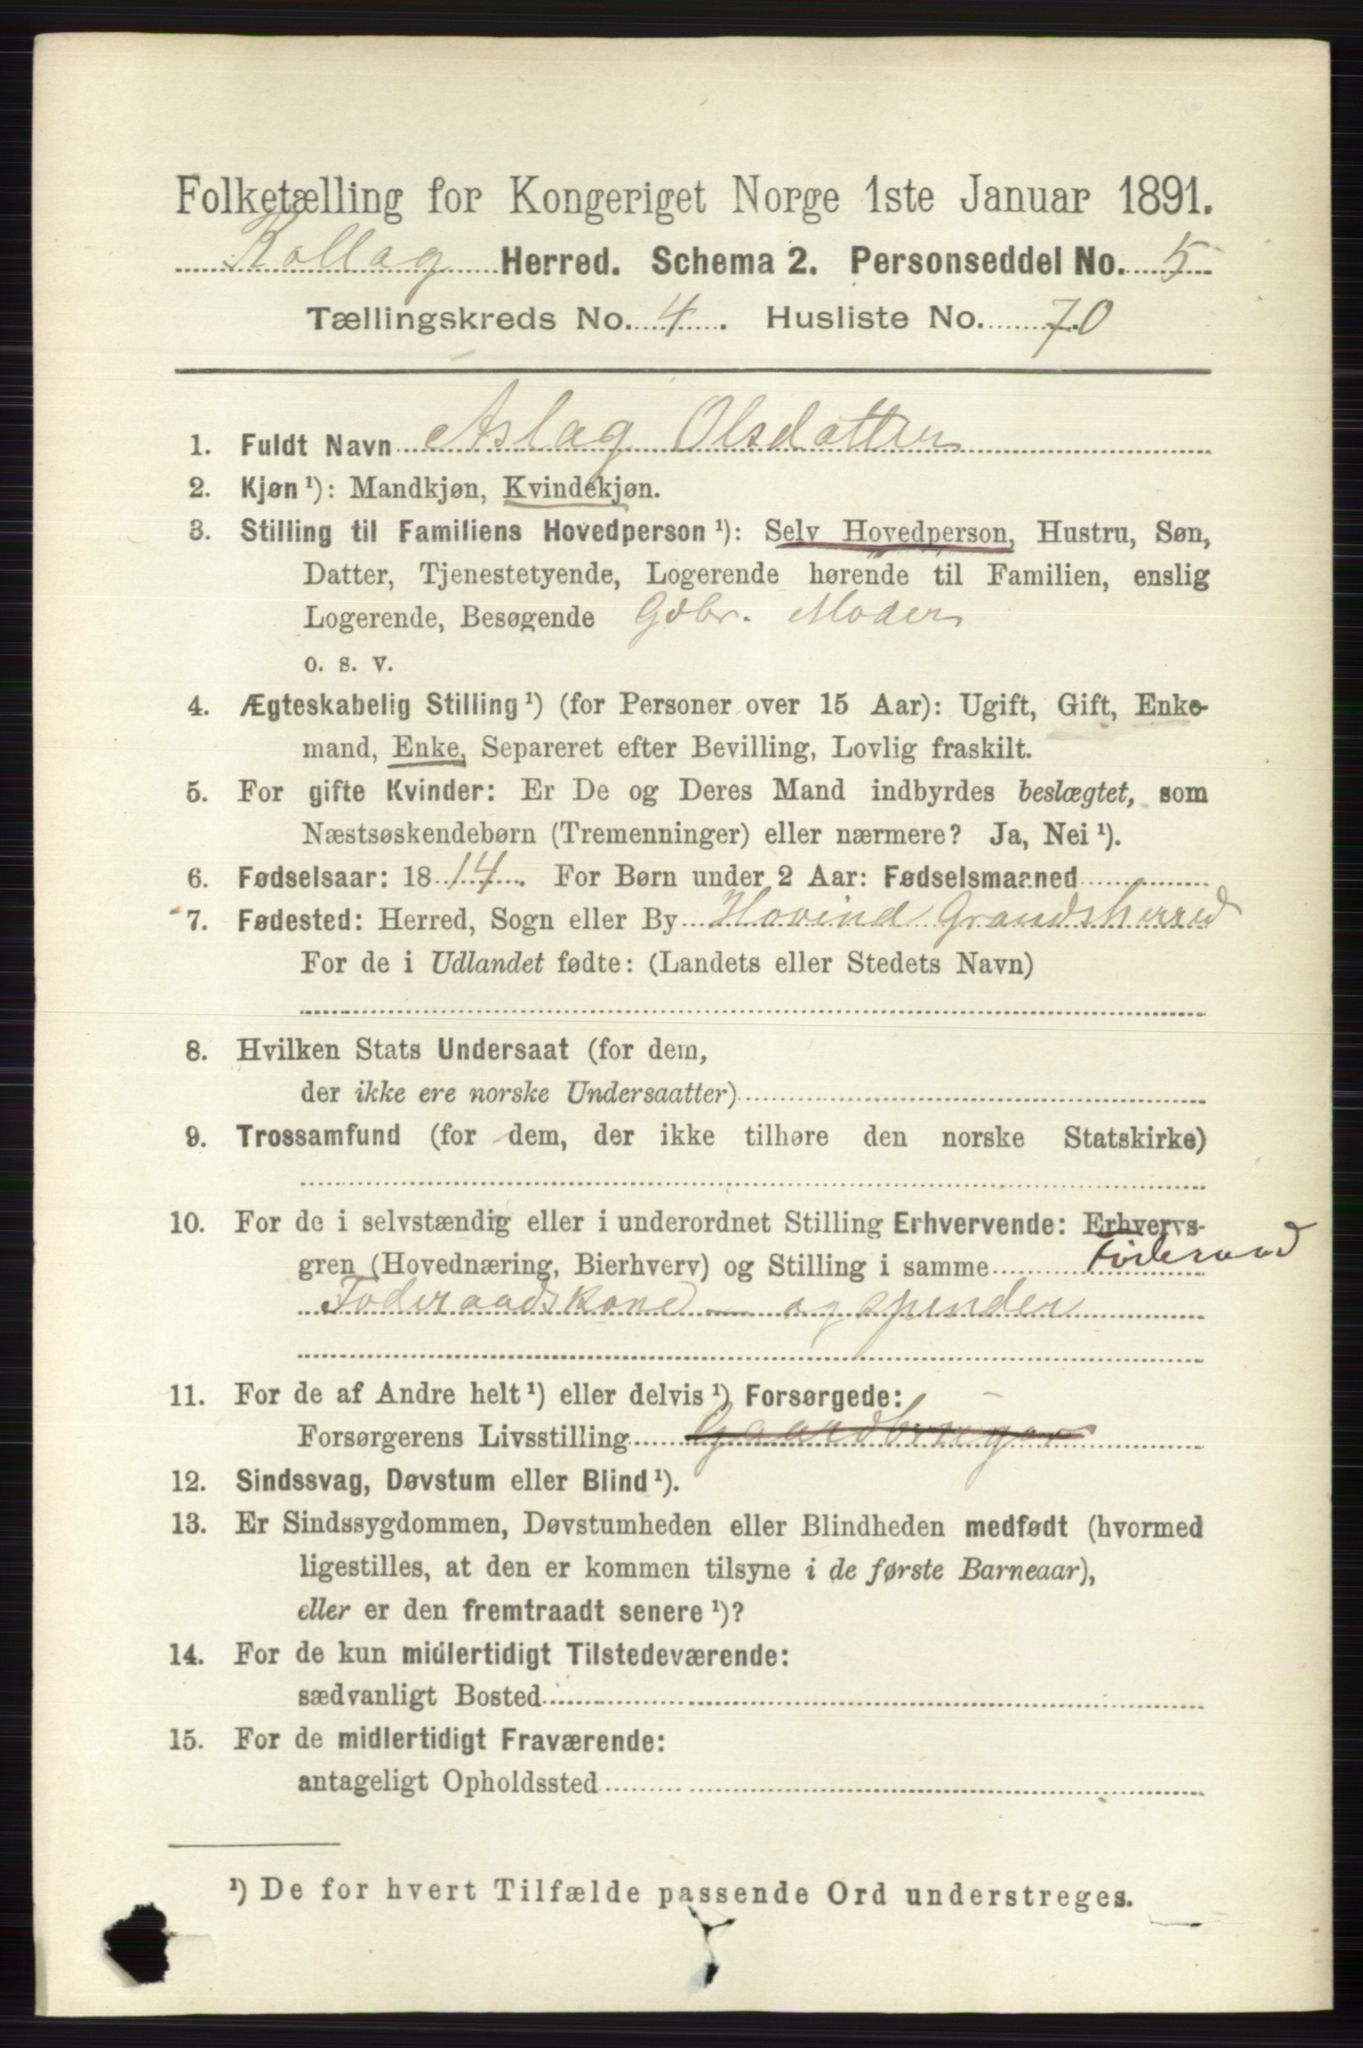 Folketælling for Kongeriget Norge 1ste Januar 1891.
Rollag Herred. Schema 2. Personseddel No. 5
Tællingskreds No. 4. Husliste No. 70
1. Fuldt Navn Aslag Olsdatter
2. Kjøn ¹): Mandkjøn, Kvindekjøn.
3. Stilling til Familiens Hovedperson ¹): Selv Hovedperson, Hustru, Søn,
Datter, Tjenestetyende, Logerende hørende til Familien, enslig
Logerende, Besøgende Gdbr. Moder
o. s. v.
4. Ægteskabelig Stilling ¹) (for Personer over 15 Aar): Ugift, Gift, Enke-
mand, Enke, Separeret efter Bevilling, Lovlig fraskilt.
5. For gifte Kvinder: Er De og Deres Mand indbyrdes beslægtet, som
Næstsøskendebørn (Tremenninger) eller nærmere? Ja, Nei ¹).
6. Fødselsaar: 1814. For Børn under 2 Aar: Fødselsmaaned
7. Fødested: Herred, Sogn eller By Hovind Grandsherred
For de i Udlandet fødte: (Landets eller Stedets Navn)
8. Hvilken Stats Undersaat (for dem,
der ikke ere norske Undersaatter)
9. Trossamfund (for dem, der ikke tilhøre den norske Statskirke)
10. For de i selvstændig eller i underordnet Stilling Erhvervende: Erhvervs-
gren (Hovednæring, Bierhverv) og Stilling i samme Föderaad
Foderaadskone - og spinder
11. For de af Andre helt ¹) eller delvis ¹) Forsørgede:
Forsørgerens Livsstilling Gaardbruger
12. Sindssvag, Døvstum eller Blind ¹).
13. Er Sindssygdommen, Døvstumheden eller Blindheden medfødt (hvormed
ligestilles, at den er kommen tilsyne i de første Barneaar),
eller er den fremtraadt senere ¹)?
14. For de kun midlertidigt Tilstedeværende:
sædvanligt Bosted
15. For de midlertidigt Fraværende:
antageligt Opholdssted
¹) De for hvert Tilfælde passende Ord understreges.